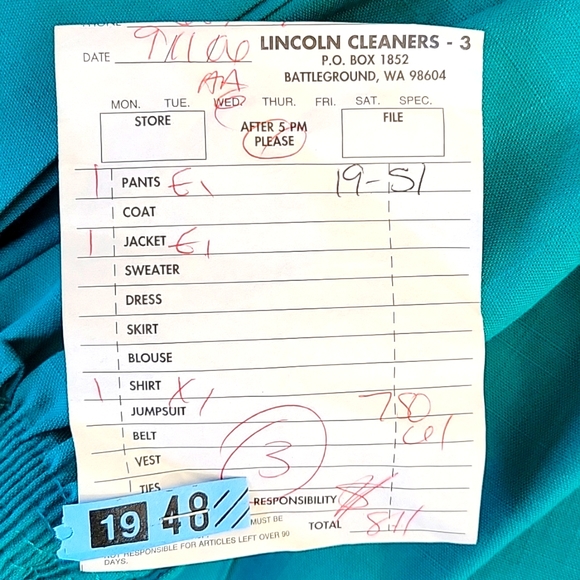 DATE 9/1/06 LINCOLN CLEANERS - 3
P.O. BOX 1852
BATTLEGROUND, WA 98604
MON. TUE. WED. THUR. FRI. SAT. SPEC.
STORE AFTER 5 PM PLEASE FILE
1 PANTS 19-51
COAT
1 JACKET
SWEATER
DRESS
SKIRT
BLOUSE
1 SHIRT
JUMPSUIT 780
BELT 61
VEST 3
TIES
RESPONSIBILITY
19 48 MUST BE TOTAL 8.41
NOT RESPONSIBLE FOR ARTICLES LEFT OVER 90
DAYS.